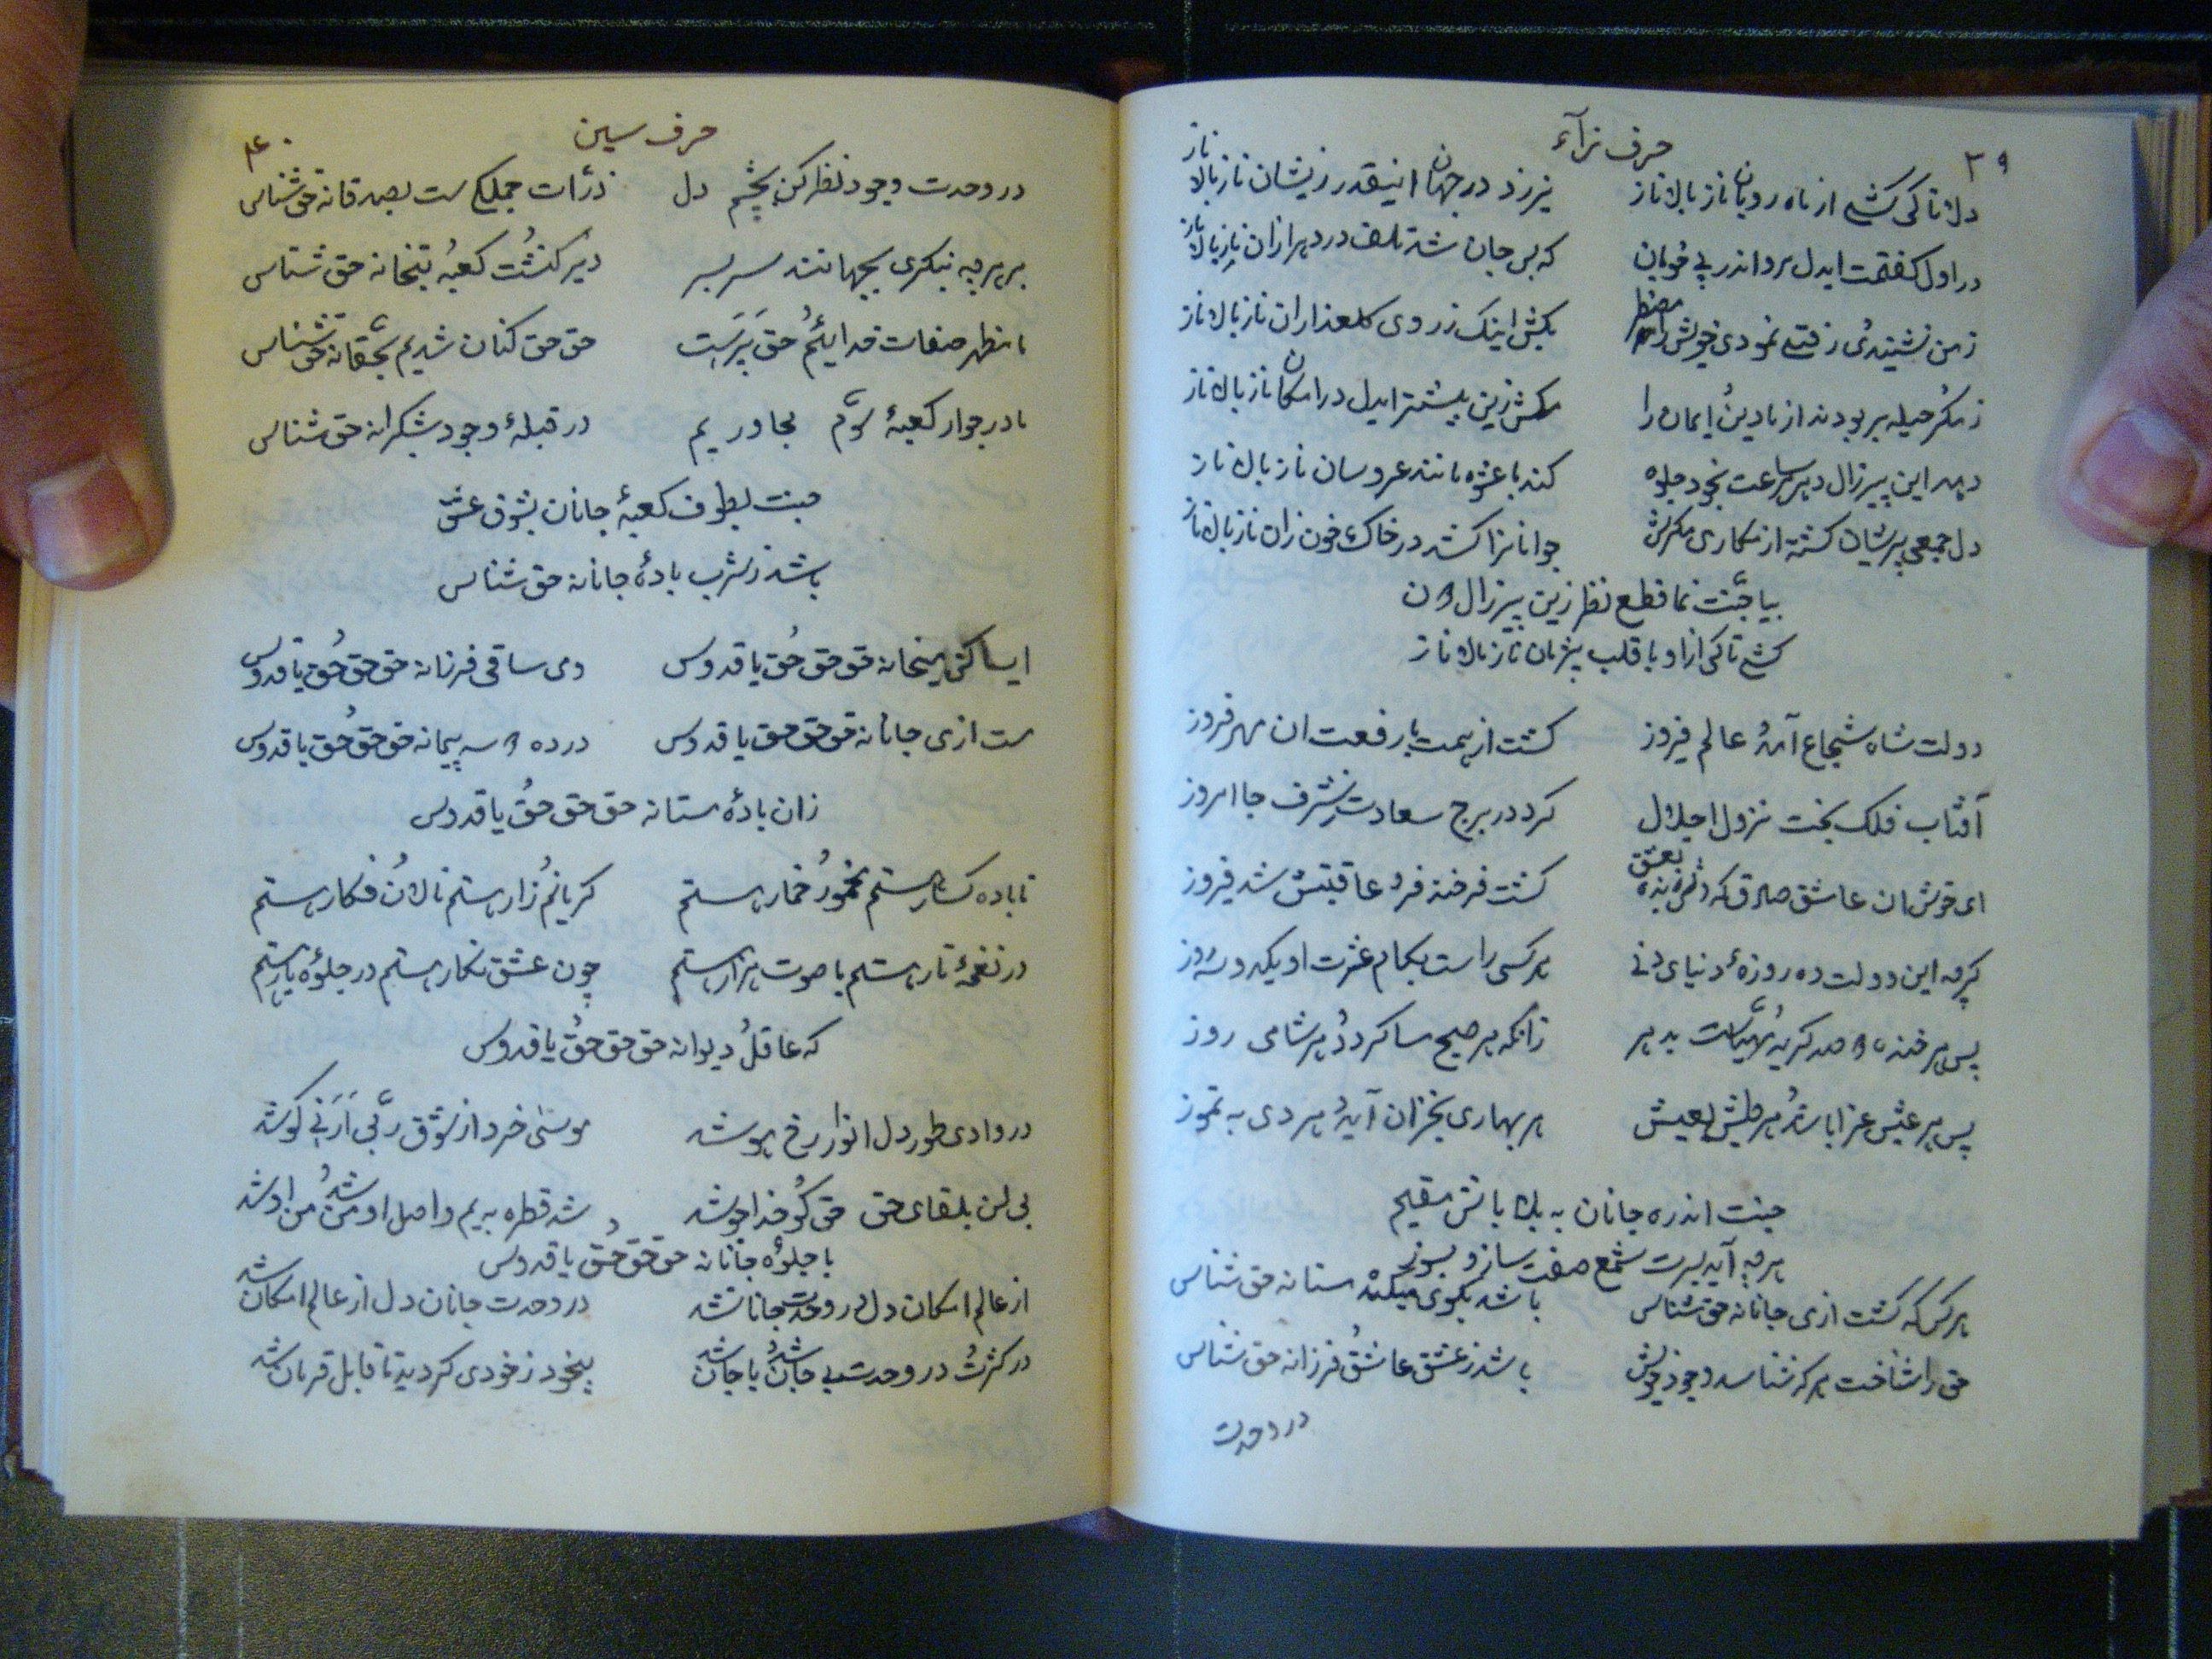 ۳۹
حرف زآء
دلا تا کی کشی از ماه رویان ناز بالا ناز
نیرزد در جهان اینقدر زیشان ناز بالا ناز
در اول گفتمت ایدل مرو اندر پی خوبان
که بس جان شد تلف در دهر ازان ناز بالا ناز
ز من نشنیدی و رفتی نمودی خویش را مضطر
بکش اینک ز روی گلعذاران ناز بالا ناز
ز مکر و حیله بربودند از ما دین و ایمان را
مکش زین بیشتر ایدل در امکان ناز بالا ناز
دهد این پیر زال دهر هر ساعت بخود جلوه
کند با عشوه مانند عروسان ناز بالا ناز
دل جمعی پریشان گشته از مکاری مکرش
جوانانرا کشد در خاک و خون زان ناز بالا ناز
بیا جنّت نما قطع نظر زین پیر زال
کشی تا کی ازو با قلب پژمان ناز بالا ناز
دولت شاه شجاع آمد و عالم فیروز
گشت از همت با رفعت ان مهر فروز
آفتاب فلک بخت نزول اجلال
کرد در برج سعادت ز شرف جا امروز
ای خوش ان عاشق صادق که
گشت فرخنده فر و عاقبتش شد فیروز
گرچه این دولت ده روزهٔ دنیای دنی
هر کسی راست بکام عشرت او یکدو سه روز
پس هر خنده صد گریه مهیّاست بدهر
زانکه هر صبح مسا گردد و هر شامی روز
پس هر عیش عزا باشد و هر طیش بعیش
هر بهاری بخزان آید و هر دی به تموز
جنت اندر ره جانان به بلا باش مقیم
هرچه آید بسرت شمع صفت ساز و بسوز
هر کس که گشت از می جانانه حق شناس
باشد بکوی میکده مستانه حق شناس
حق را شناخت هر که شناسد وجود خویش
باشد ز عشق عاشق و فرزانه حق شناس
در وحدت
۴۰
حرف سین
در وحدت وجود نظر کن بچشم دل
ذرّات جملگی ست بصد قانه حق شناس
بر هرچه بنگری بجهانند سر بسر
دیر و کنشت و کعبه و بتخانه حق شناس
ما مظهر صفات خدائیم و حق پرست
حق حق کنان شدیم بحقانه حق شناس
ما در جوار کعبهٔ مجاوریم
در قبلهٔ وجود بشکرانه حق شناس
جنت بطوف کعبهٔ جانان بشوق عشق
باشد ز شرب بادهٔ جانانه حق شناس
ایساکن میخانه حق حق حق یا قدوس
وی ساقی فرزانه حق حق حق یا قدوس
مست از می جانانه حق حق حق یا قدوس
در ده سه پیمانه حق حق حق یا قدوس
زان بادهٔ مستانه حق حق حق یا قدوس
تا باده گسار هستم مخمور و خمار هستم
گریانم و زار هستم نالان و فکار هستم
در نغمهٔ تار هستم با صوت هزار هستم
چون عشق نگار هستم در جلوهٔ یار هستم
که عاقل و دیوانه حق حق حق یا قدوس
در وادی طور دل انوار رخ هو شد
موسیٰ خرد از شوق ربّی اَرَنی گو شد
بی لن بلقای حق حق گو و خدا جو شد
شد قطره به یم واصل او من شد و من او شد
با جلوهٔ جانانه حق حق حق یا قدوس
از عالم امکان دل در وحدت جانان شد
در وحدت جانان دل از عالم امکان شد
در کثرت و در وحدت بی جان شد و با جان شد
بیخود ز خودی گردید تا قابل قربان شد